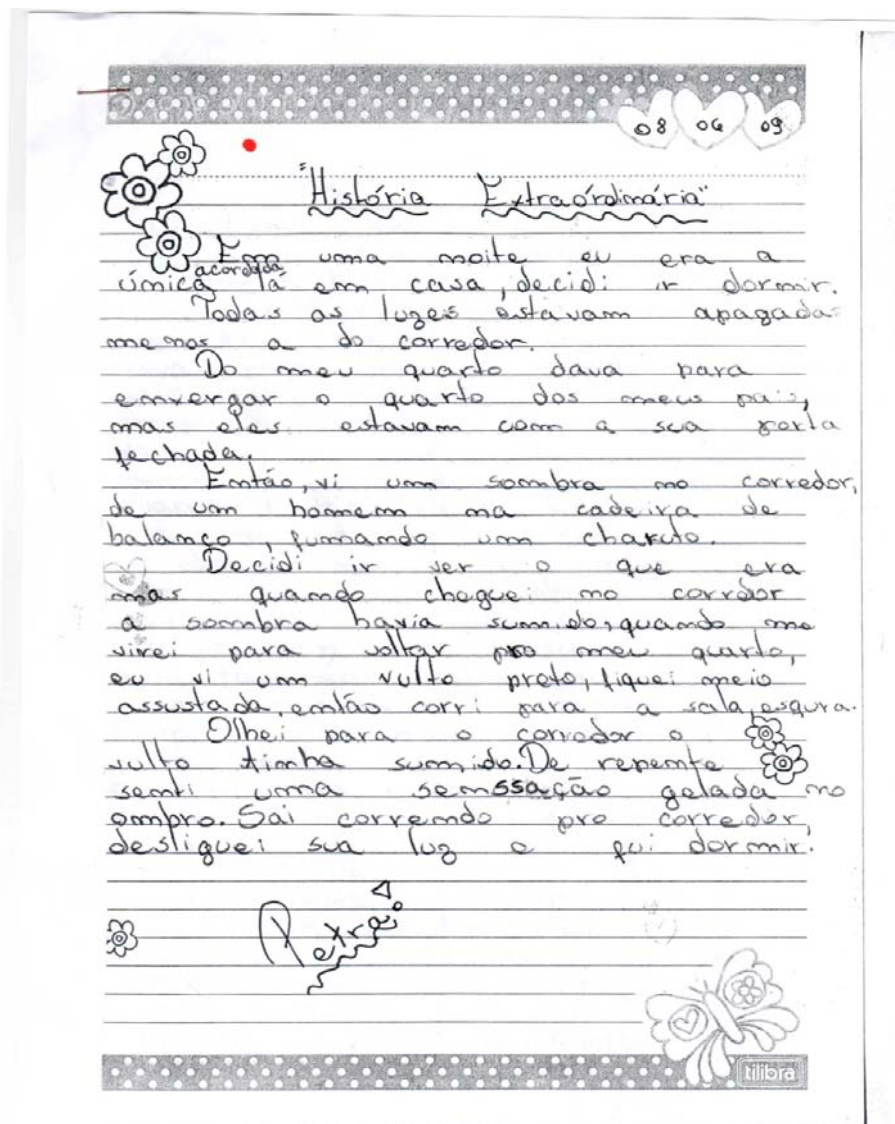 08 06 09
"História Extraórdinária"
Em uma noite eu era a
única acordada lá em casa, decidi ir dormir.
Todas as luzes estavam apagadas
menos a do corredor.
Do meu quarto dava para
enxergar o quarto dos meus pais,
mas eles estavam com a sua porta
fechada.
Então, vi um sombra no corredor,
de um homem na cadeira de
balanço, fumando um charuto.
Decidi ir ver o que era
mas quando cheguei no corredor
a sombra havia sumido, quando me
virei para voltar pro meu quarto,
eu vi um vulto preto, fiquei meio
assustada, então corri para a sala, esqura.
Olhei para o corredor o
vulto tinha sumido. De repente
senti uma senssação gelada no
ompro. Sai correndo pro corredor,
desliguei sua luz e fui dormir.
tilibra